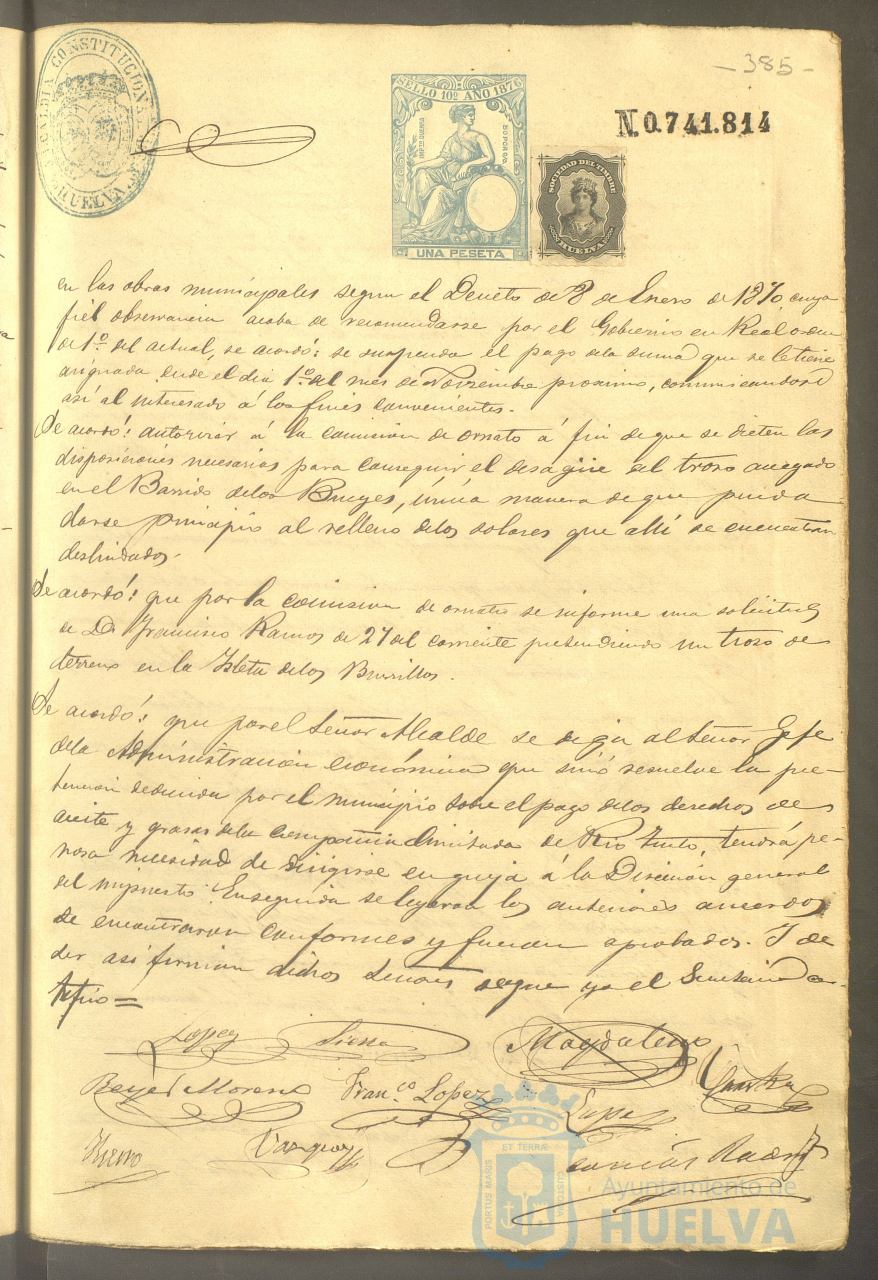 ALCALDIA CONSTITUCIONAL DE HUELVA
- 385 -
SELLO 10º AÑO 1876
UNA PESETA
SOCIEDAD DEL TIMBRE
HUELVA
N.0.741.814
en las obras municipales segun el Decreto de 8 de Enero de 1870 cuya
fiel observancia acaba de recomendarse por el Gobierno en Real orden
de 1º del actual, se acordó: se suspenda el pago de la suma que se le tiene
asignada desde el dia 1º del mes de Noviembre proximo, comunicandose
asi al interesado á los fines convenientes.
Se acordó: autorizar á la comision de ornato á fin de que se dicten las
disposiciones necesarias para conseguir el desagüe del trozo anegado
en el Barrido de los Bueyes, única manera de que pueda
darse principio al relleno de los solares que alli se encuentran
deslindados.
Se acordó: que por la comision de ornato se informe una solicitud
de Dn Francisco Ramos de 27 del corriente pretendiendo un trozo de
terreno en la Isleta de los Burrillos.
Se acordó: que por el Señor Alcalde se diga al Señor Gefe
de la Administracion económica que sinó resuelve la pre-
tension deducida por el municipio sobre el pago de los derechos de
aceite y grasas de la Compañia limitada de Rio Tinto, tendrá pe-
nosa necesidad de dirigirse en queja á la Direccion general
del impuesto. Enseguida se leyeron los anteriores acuerdos
se encontraron conformes y fueron aprobados. Y de
ser asi firman dichos Señores de que yo el Secretario cer-
tifico =
Lopez Siena Magdalena
Reyes Moreno Fran.co Lopez Lopez
Hierro Vazquez
ET TERRÆ
PORTUS MARIS
CUSTODIA
Ayuntamiento de
HUELVA